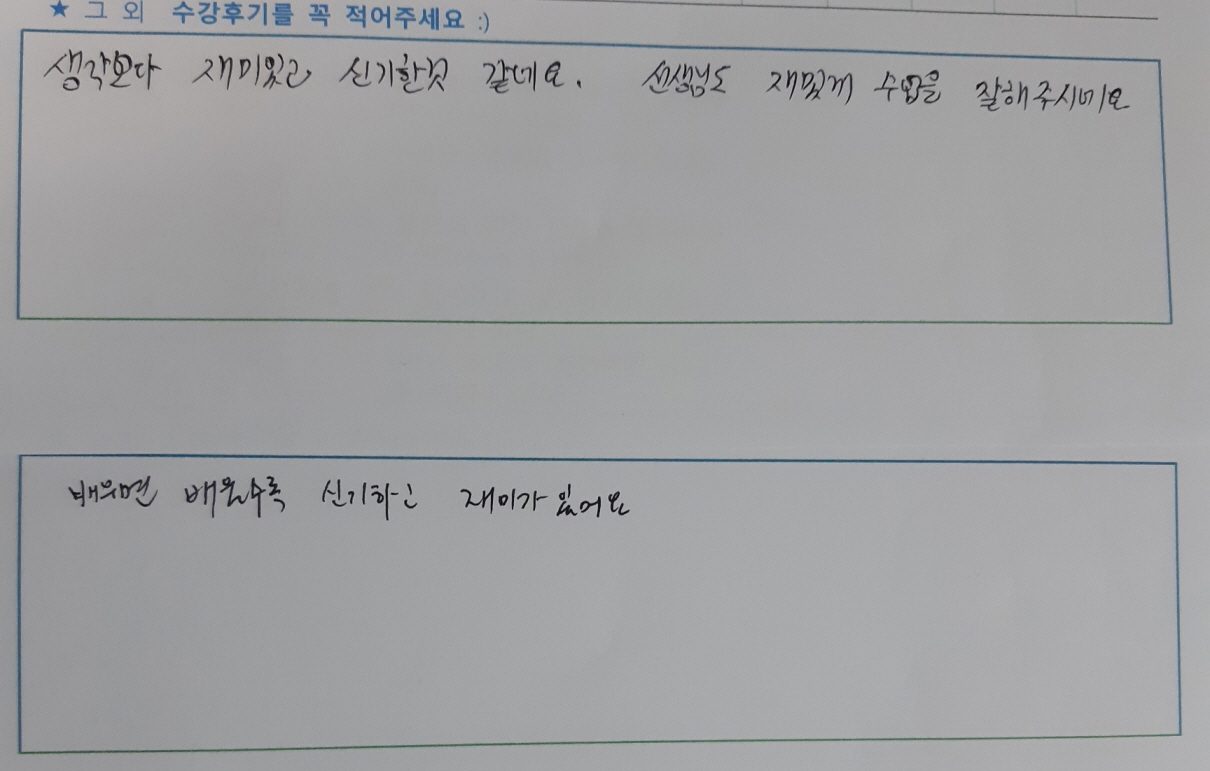 ★ 그 외 수강후기를 꼭 적어주세요 :)
생각보다 재미있고 신기한것 같네요. 선생님도 재밌게 수업을 잘해주시네요
배우면 배울수록 신기하고 재미가 있어요